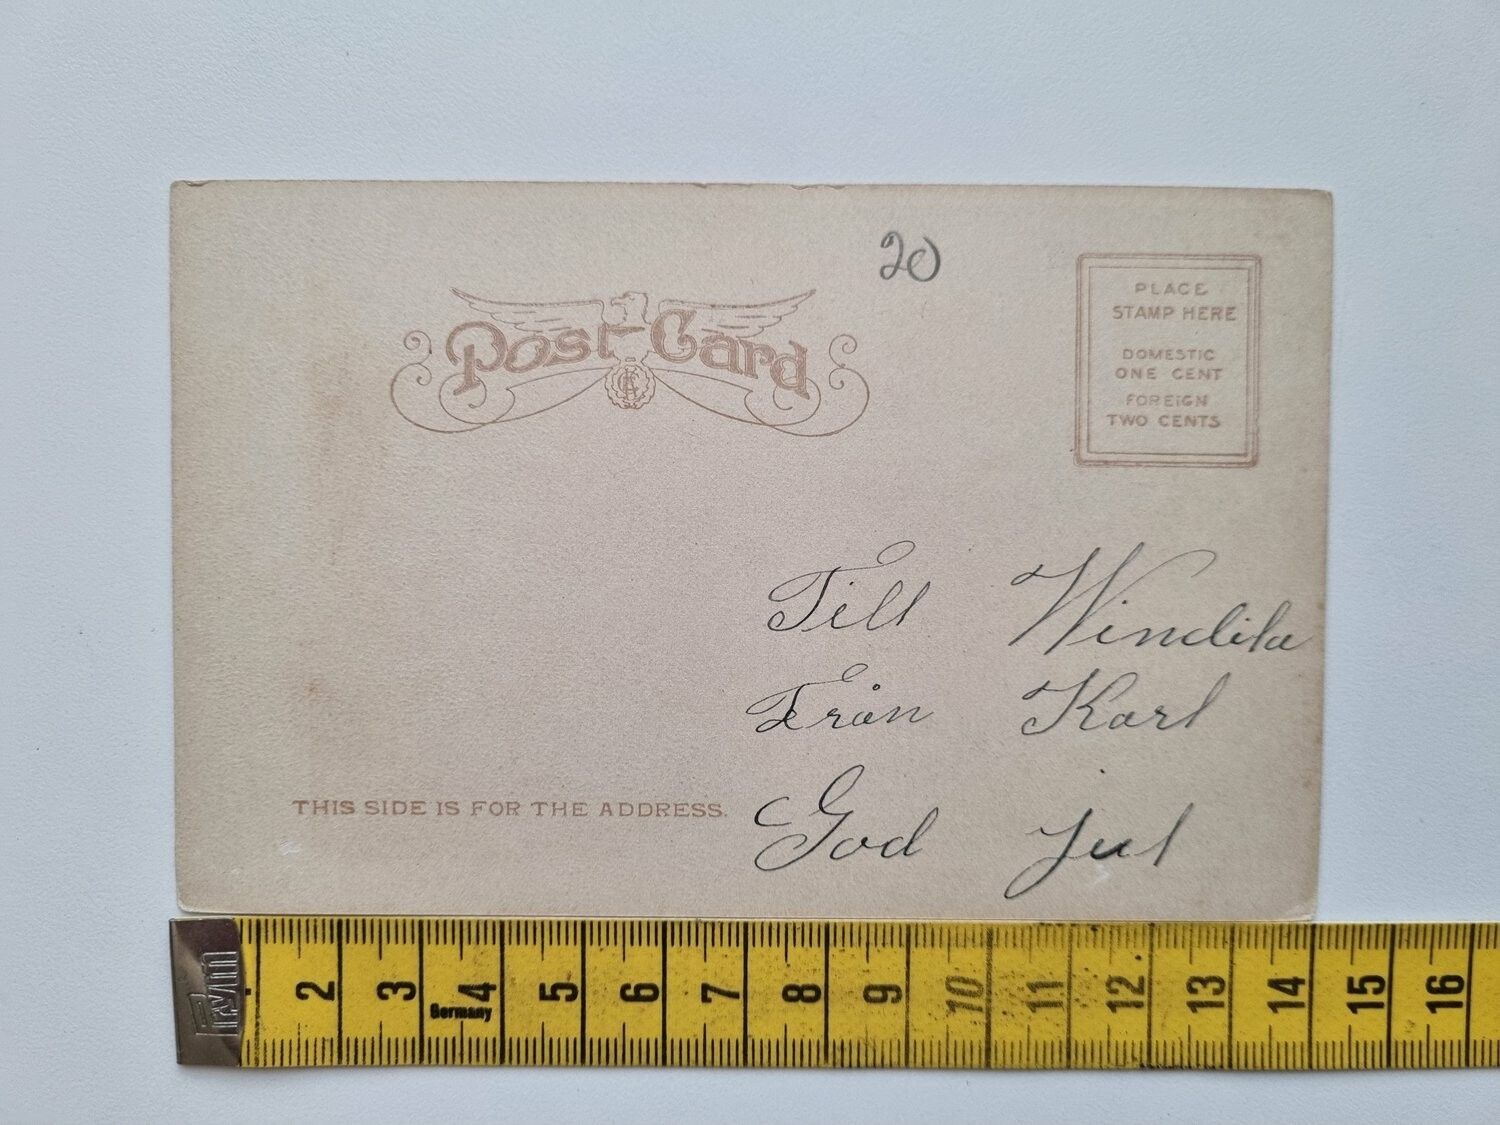 20
Post Card
PLACE
STAMP HERE
DOMESTIC
ONE CENT
FOREIGN
TWO CENTS
Till Windila
Från Karl
God Jul
THIS SIDE IS FOR THE ADDRESS.
2 3 4 5 6 7 8 9 10 11 12 13 14 15 16
Germany
Prym